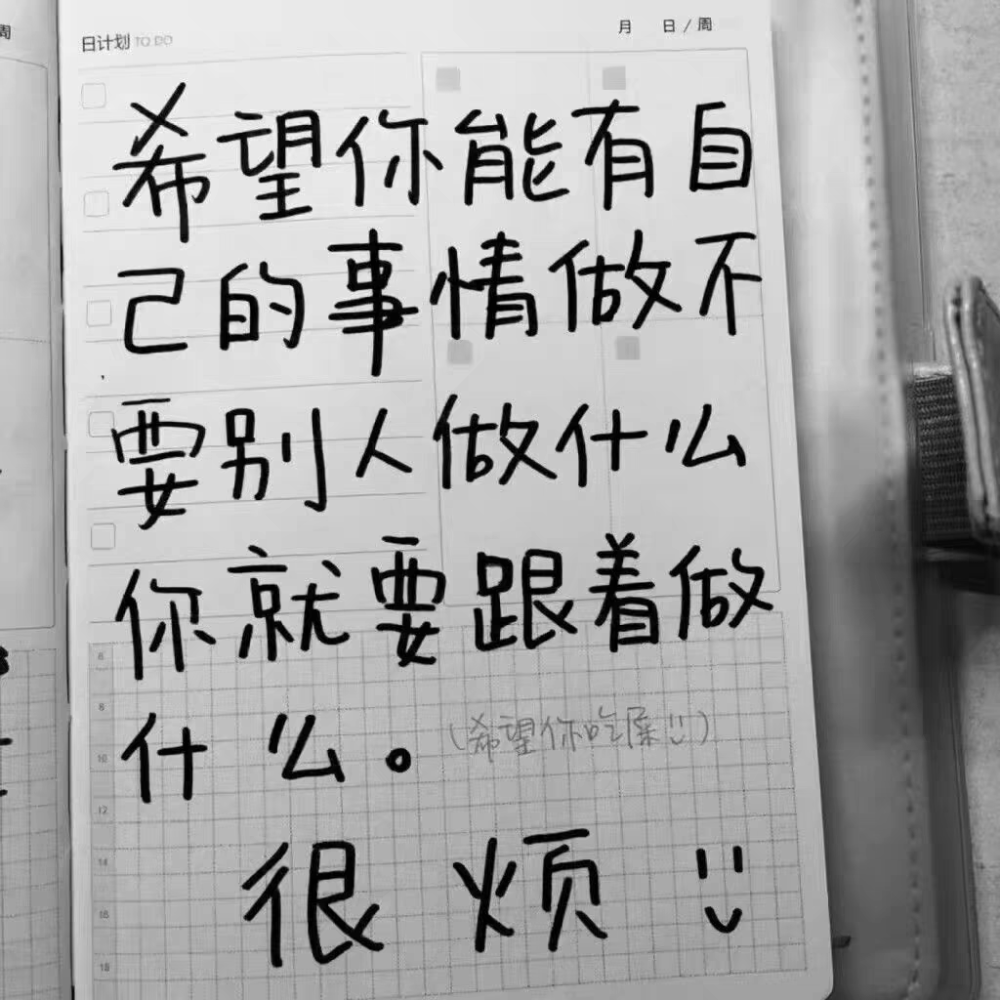 周
日计划 TO DO
月 日/周
希望你能有自
己的事情做不
要别人做什么
你就要跟着做
什么。(希望你吃屎:))
很烦:)
6
8
10
12
14
16
18